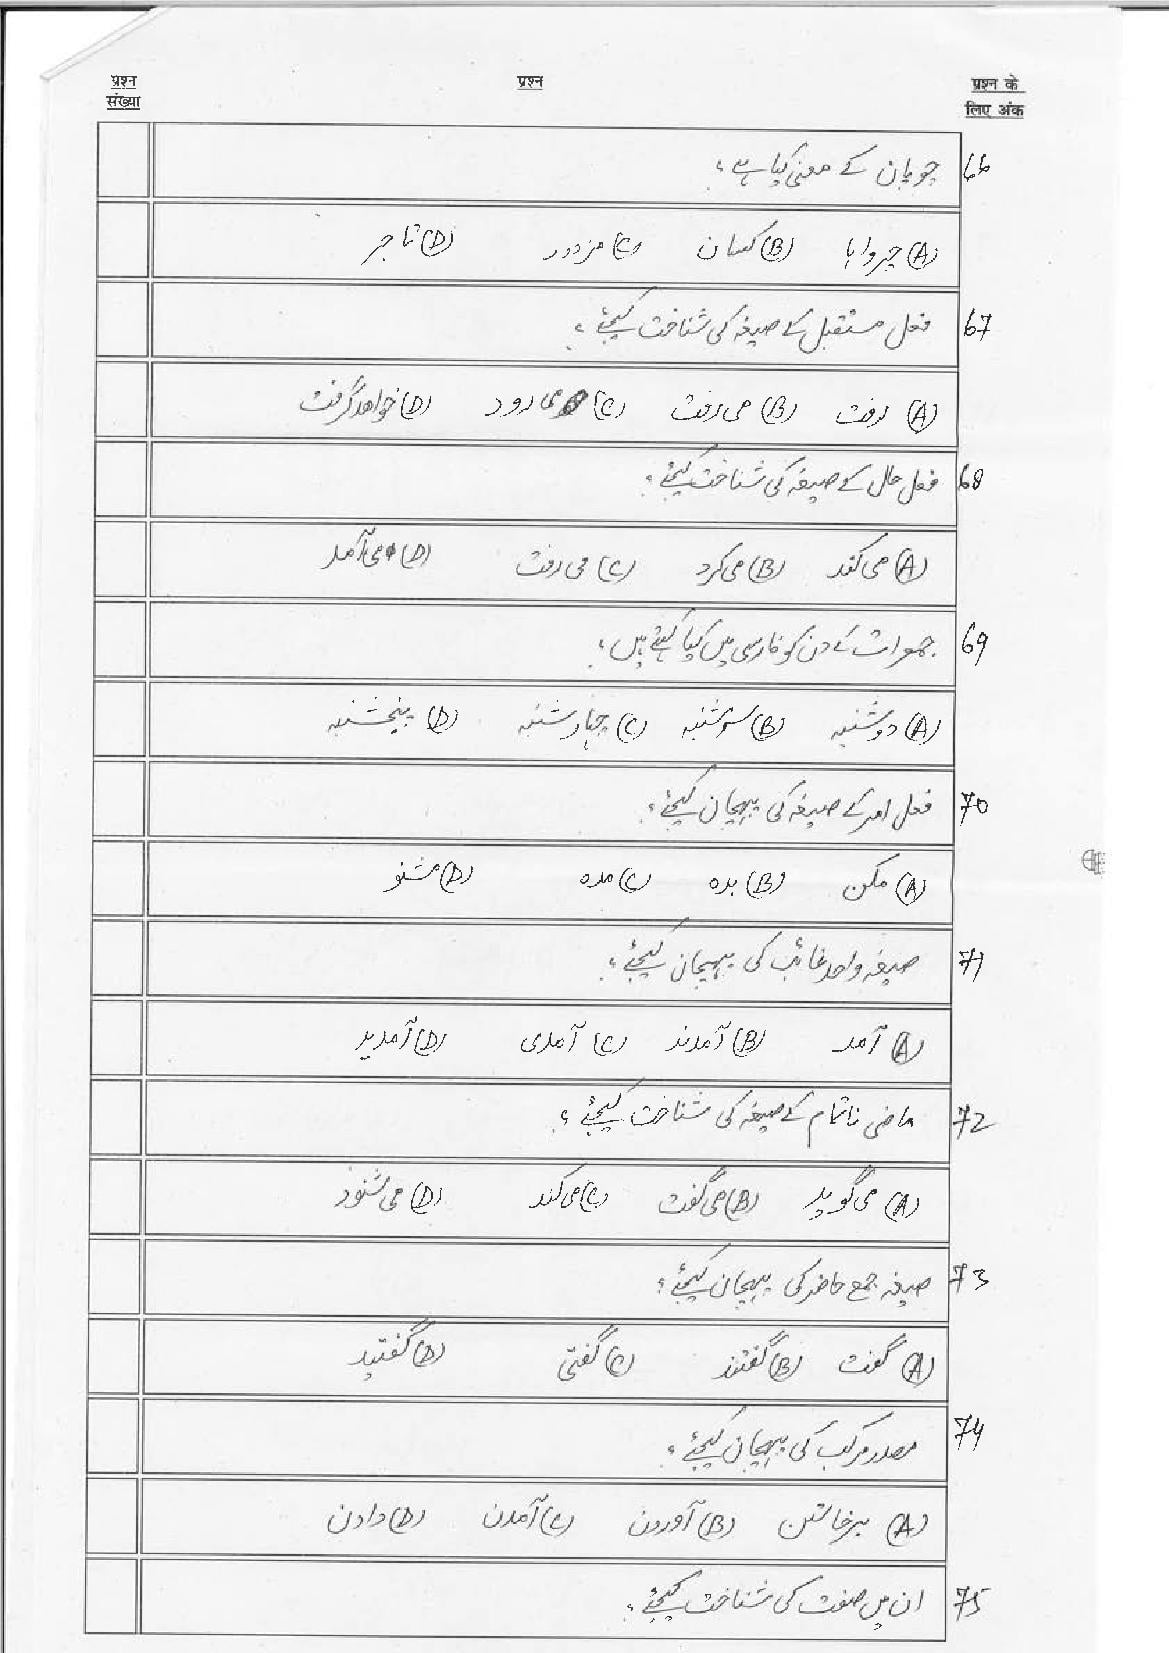 प्रश्न संख्या
प्रश्न
प्रश्न के लिए अंक
66 چوپان کے معنی کیا ہے؟
(A) چرواہا (B) کسان (C) مزدور (D) تاجر
67 فعل مستقبل کے صیغہ کی شناخت کیجئے؟
(A) رفت (B) می رفت (C) می رود (D) خواھد گرفت
68 فعل حال کے صیغہ کی شناخت کیجئے؟
(A) می کند (B) می کرد (C) می رفت (D) می آمد
69 جمعرات کے دن کو فارسی میں کیا کہتے ہیں؟
(A) دوشنبہ (B) سہ شنبہ (C) چہارشنبہ (D) پنجشنبہ
70 فعل امر کے صیغہ کی پہچان کیجئے؟
(A) مکن (B) بدہ (C) مدہ (D) مشنو
71 صیغہ واحد غائب کی پہچان کیجئے؟
(A) آمد (B) آمدند (C) آمدی (D) آمدید
72 ماضی ناتمام کے صیغہ کی شناخت کیجئے؟
(A) می گوید (B) می گفت (C) می کند (D) می شنود
73 صیغہ جمع حاضر کی پہچان کیجئے؟
(A) گفت (B) گفتند (C) گفتی (D) گفتید
74 مصدر مرکب کی پہچان کیجئے؟
(A) برخاستن (B) آوردن (C) آمدن (D) دادن
75 ان میں صفت کی شناخت کیجئے؟